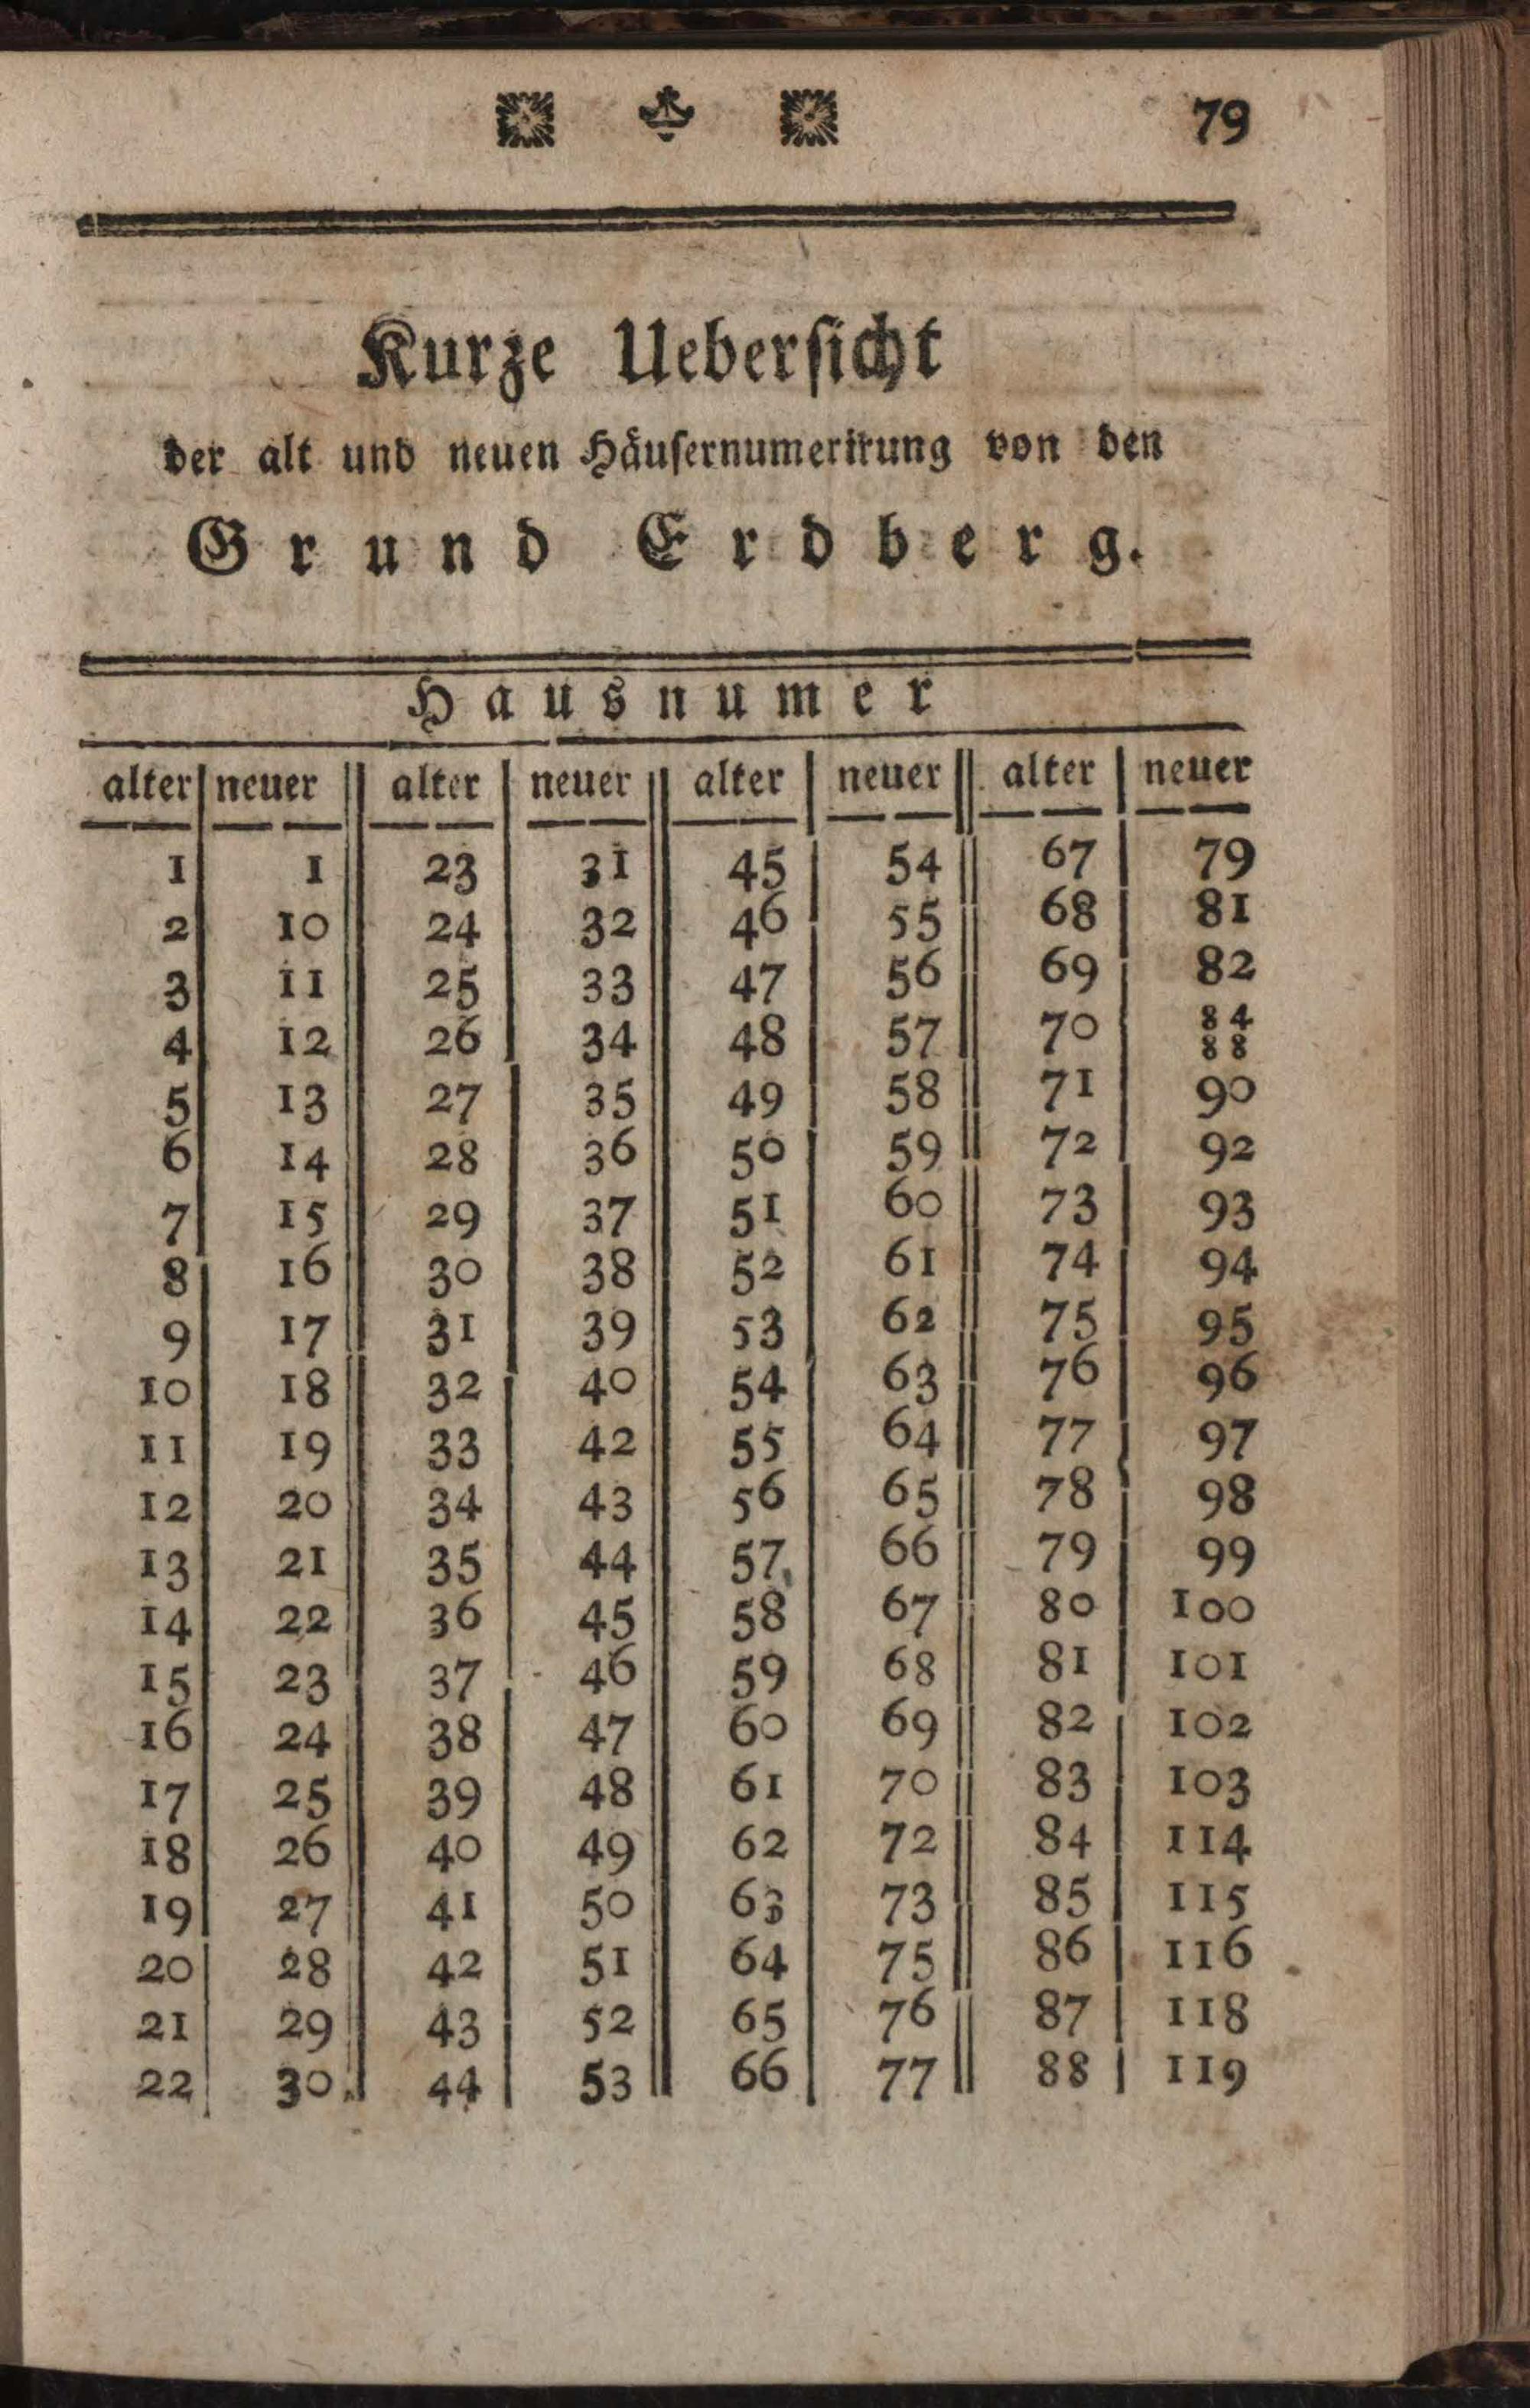 79
Kurze Ueberſicht
der alt und neuen Häuſernumerirung von den
Grund Erdberg.
Hausnumer
alter neuer alter neuer alter neuer alter neuer
1 1 23 31 45 54 67 79
2 10 24 32 46 55 68 81
3 11 25 33 47 56 69 82
4 12 26 34 48 57 70 84
88
5 13 27 35 49 58 71 90
6 14 28 36 50 59 72 92
7 15 29 37 51 60 73 93
8 16 30 38 52 61 74 94
9 17 31 39 53 62 75 95
10 18 32 40 54 63 76 96
11 19 33 42 55 64 77 97
12 20 34 43 56 65 78 98
13 21 35 44 57 66 79 99
14 22 36 45 58 67 80 100
15 23 37 46 59 68 81 101
16 24 38 47 60 69 82 102
17 25 39 48 61 70 83 103
18 26 40 49 62 72 84 114
19 27 41 50 63 73 85 115
20 28 42 51 64 75 86 116
21 29 43 52 65 76 87 118
22 30 44 53 66 77 88 119